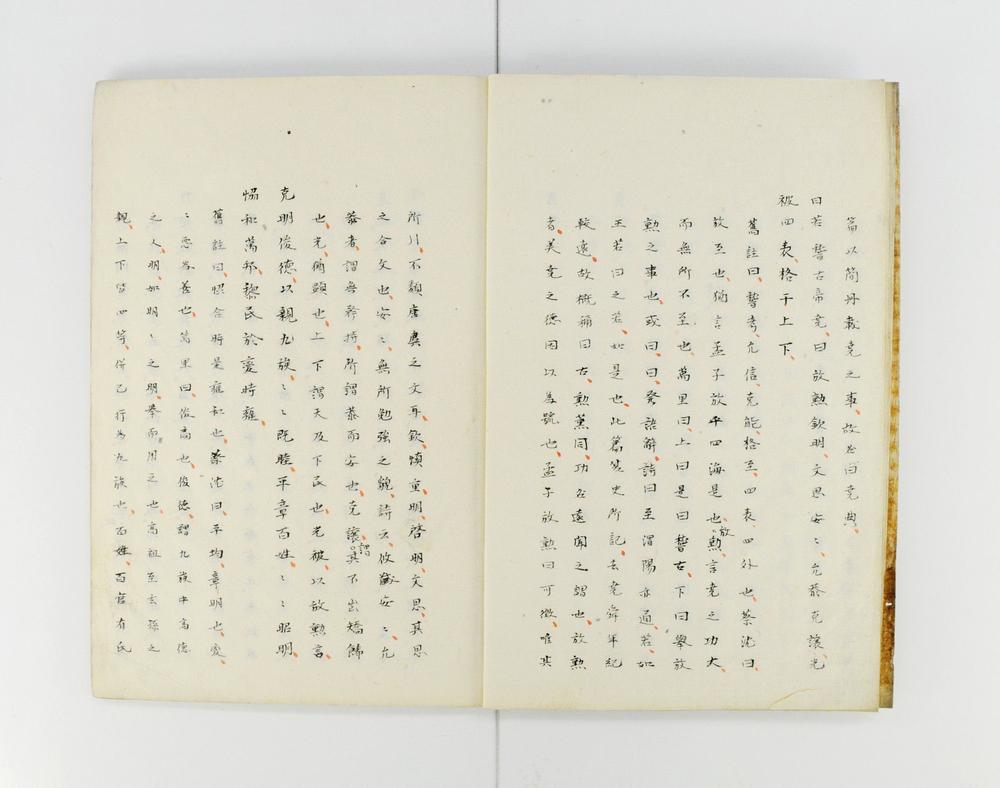 篇以簡册載堯之事、故名曰堯典、
曰若稽古帝堯、曰放勳欽明、文思安〻、允恭克讓、光
被四表、格于上下、
舊註曰、稽考、允信、克能、格至、四表、四外也、蔡沈曰、
放至也、猶言孟子放乎四海是也、放勳言堯之功大、
而無所不至也、萬里曰、上曰是曰稽古、下曰舉放
勳之事也、或曰、曰、發語辭、詩曰至渭陽亦通、若、如
王若曰之若、如是也、此篇筮史所記、去堯舜年紀
較遠、故概稱曰古、勳薰同、功名遠聞之謂也、放勳
者、美堯之德因以為號也、孟子放勳曰可徵、唯其
所川、不類唐虞之文耳、欽慎重、明啓明、文思、其思
之合文也、安〻、無所勉強之貌、詩云攸馘安〻、允
恭者、謂無矜持、所謂恭而安也、克讓、謂其不出矯餙
也、光、猶顯也、上下謂天及下民也、光被、以放勳言、
克明俊德、以親九族、〻〻既睦、平章百姓、〻〻昭明、
恊和萬邦、黎民於變時雍、
舊註曰、㥀合時是雍和也、蔡沈曰、平均章明也、變、
〻惡為善也、萬里曰、俊高也、俊德謂九族中高德
之人、明、如明〻之明、舉而用之也、高祖至玄孫之
親、上下皆四等、併己行為九族也、百姓、百官有氏